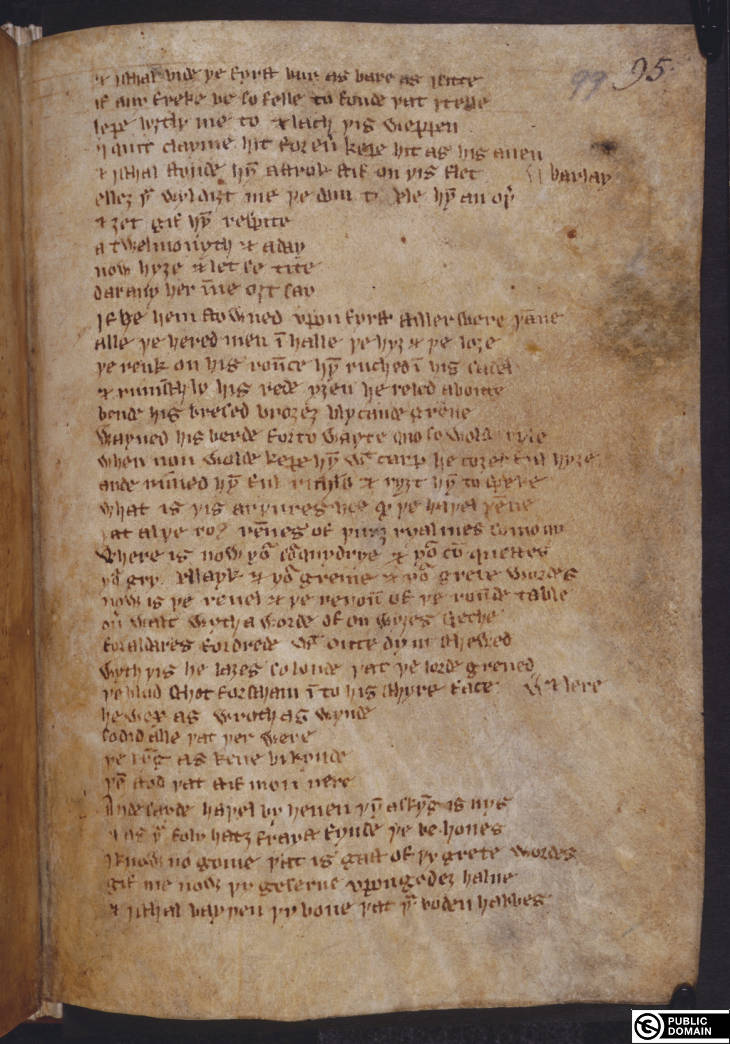 99 95.
& I schal bide þe fyrst bur as bare as I sitte
if any freke be so felle to fonde þat I telle
lepe lyȝtly me to & lach þis weppen
I quit clayme hit for eũ kepe hit as his auen
& I schal stonde hȳ a strok stif on þis flet
ellez þͧ wyl diȝt me þe dom to dele hȳ an oþ̛ barlay
& ȝet gif hȳ respite
a twelmonyth & a day
now hyȝe & let se tite
dar any her īne oȝt say
If he hem stowned vpon fyrst stiller were þāne
alle þe hered men ī halle þe hyȝ & þe loȝe
þe renk on his roūce hȳ ruched ī his sadel
& runischly his rede yȝen he reled aboute
bende his bresed broȝez blycande grene
wayued his berde for to wayte quo so wolde ryse
when non wolde kepe hȳ wͭ carp he coȝed ful hyȝe
ande rimed hȳ ful richly & ryȝt hȳ to speke
what is þis arþures hous qͦ þe haþel þēne
þat al þe rous rēnes of þurȝ ryalmes so mony
where is now yoͬ sourquydrye & yoͬ cōquestes
yoͬ gryndellayk & yoͬ greme & yoͬ grete wordes
now is þe reuel & þe renoun of þe rounde table
ou̅ walt wyth a worde of on wyȝes speche
for al dares for drede wͭ oute dynt schewed
wyth þis he laȝes so loude þat þe lorde greued
þe blod schot for scham ī to his schyre face & lere
he wex as wroth as wynde
so did alle þat þer were
þe kȳg as kene bi kynde
þē stod þat stif mon nere
Ande sayde haþel by heuen þȳ askȳg is nys
& as þͧ foly hatz frayst fynde þe be hones
I know no gome þat is gast of þy grete wordes
gif me now þy geserne vpon godez halue
& I schal bayþen þy bone þat þͧ boden habbes
PUBLIC
DOMAIN